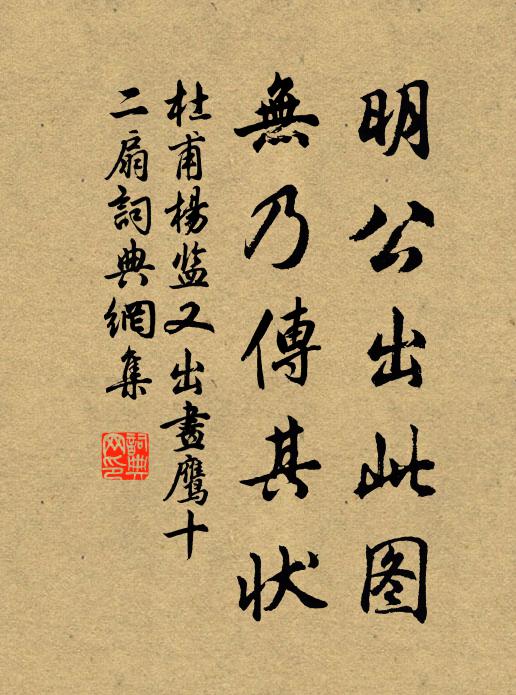 明公出此图
無乃傳其狀
杜甫楊监又出畫鷹十
二扇詞典網集
詞典
网印